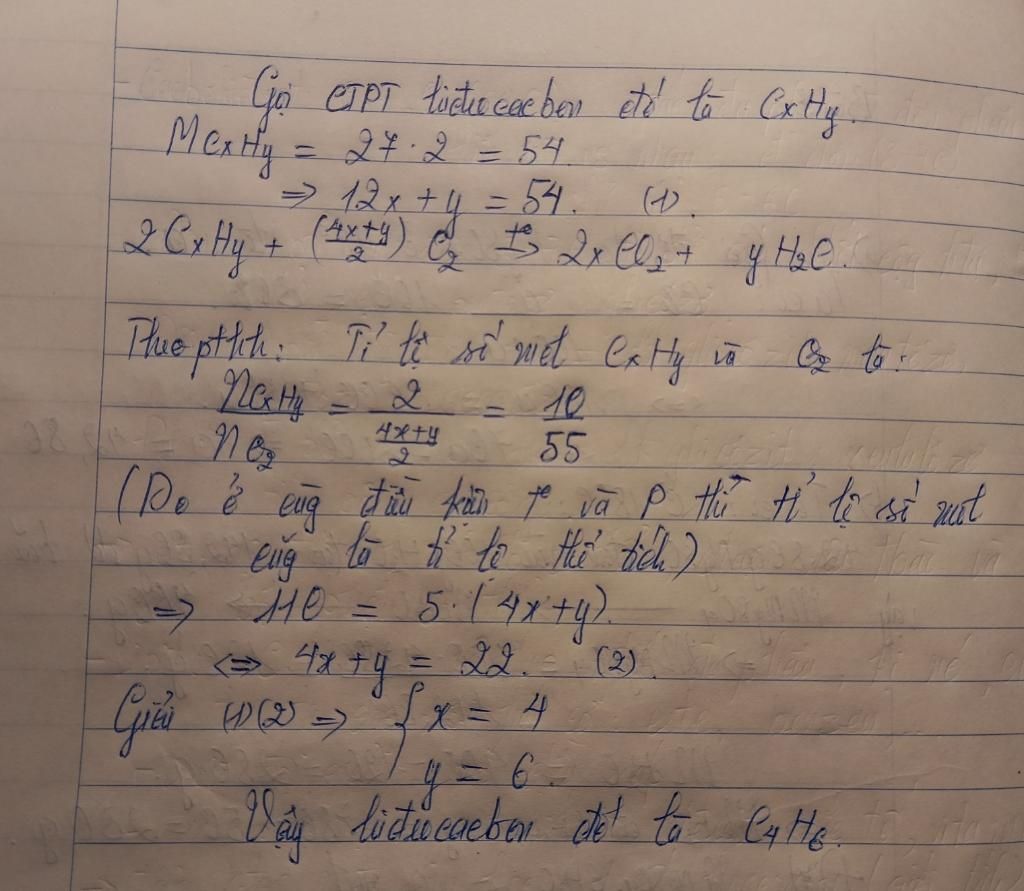 Gọi CTPT hiđrocacbon đó là CxHy.
MCxHy = 27.2 = 54
=> 12x+y = 54. (1).
2CxHy + (4x+y/2) O2 t°→ 2xCO2 + yH2O.
Theo ptth: Tỉ lệ số mol CxHy và O2 là:
nCxHy/nO2 = 2/(4x+y/2) = 10/55
(Do ở cùng điều kiện t° và P thì tỉ lệ số mol
cũng là tỉ lệ thể tích)
=> 110 = 5.(4x+y).
<=> 4x+y = 22. (2).
Giải (1)(2) => { x = 4
y = 6.
Vậy hiđrocacbon đó là C4H6.